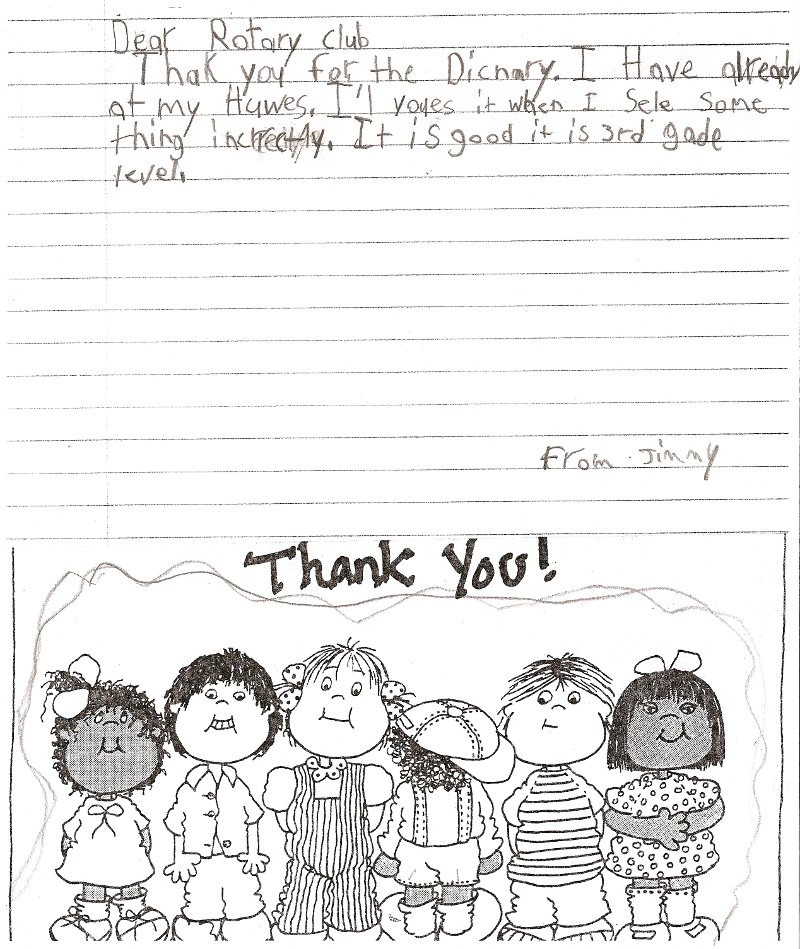 Dear Rotary Club
Thak you for the Dicnary. I Have already
at my Huwes. I'll youes it when I Sele Some
thing increctly. It is good it is 3rd gade
level.
From Jimmy
Thank You!